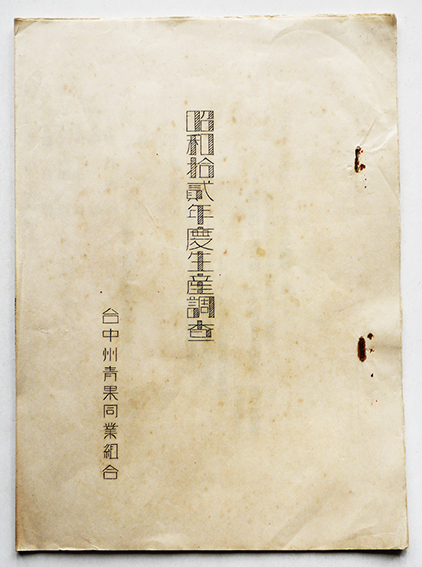 昭和拾貳年度生産調査
台中州青果同業組合